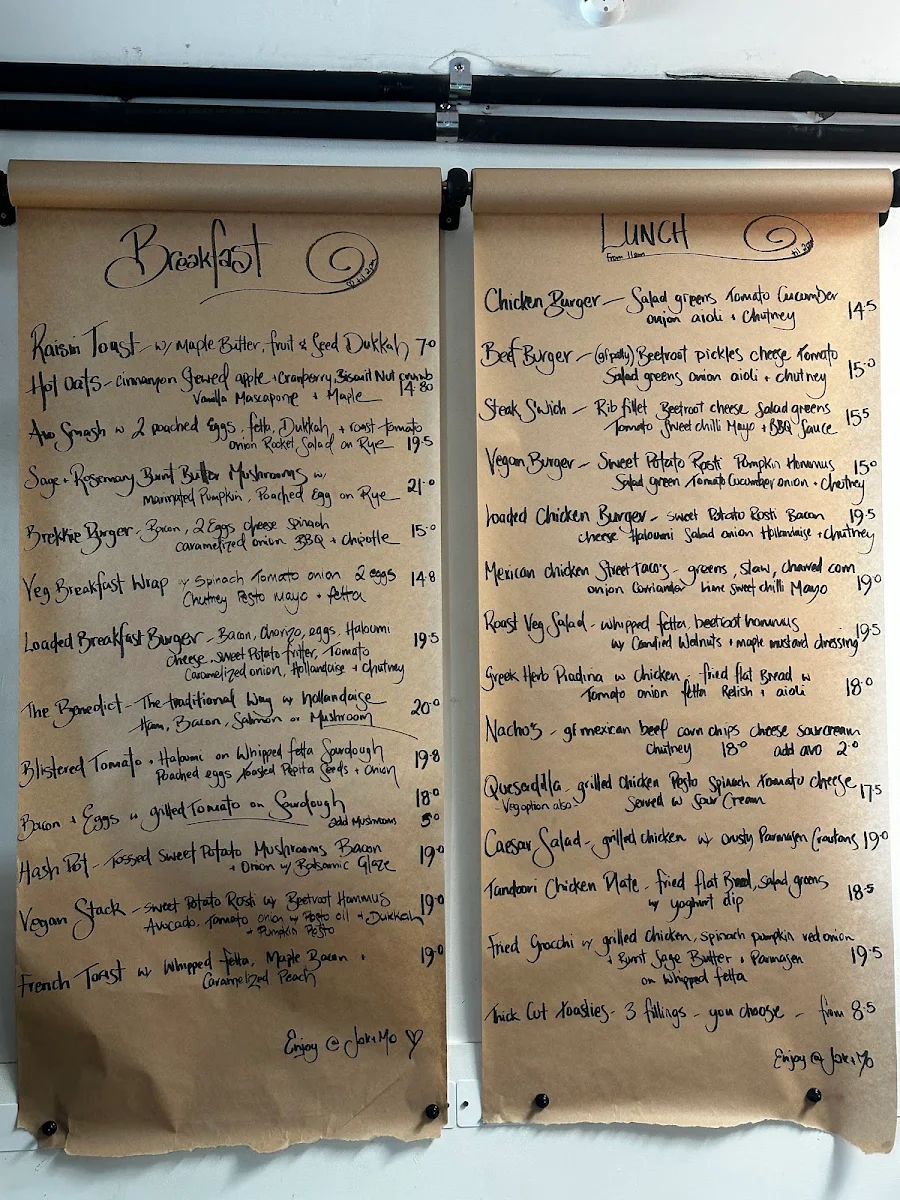 Breakfast
til 2pm
Raisin Toast - w/ Maple Butter, fruit & Seed Dukkah 7.0
Hot Oats - cinnamon Stewed apple + Cranberry, Biscuit Nut crumb
Vanilla Mascapone + Maple 14.80
Avo Smash w 2 poached Eggs, fetta, Dukkah, + roast tomato
onion Rocket Salad on Rye 19.5
Sage + Rosemary Burnt Butter Mushrooms w/
marinated Pumpkin, Poached Egg on Rye 21.0
Brekkie Burger - Bacon, 2 Eggs cheese spinach
caramelized onion BBQ + chipotle 15.0
Veg Breakfast Wrap w Spinach Tomato onion 2 eggs
Chutney Pesto mayo + fetta 14.8
Loaded Breakfast Burger - Bacon, Chorizo, eggs, Haloumi
cheese, sweet Potato fritter, Tomato
Caramelized onion, Hollandaise + chutney 19.5
The Benedict - The traditional Way w hollandaise
Ham, Bacon, Salmon or Mushroom 20.0
Blistered Tomato + Haloumi on Whipped fetta Sourdough
Poached eggs toasted Pepita Seeds + onion 19.8
Bacon + Eggs w grilled Tomato on Sourdough 18.0
add Mushroom 5.0
Hash Pot - Tossed Sweet Potato Mushrooms Bacon
+ Onion w/ Balsamic Glaze 19.0
Vegan Stack - sweet Potato Rosti w/ Beetroot Hommus
Avocado, Tomato onion w Pesto oil + Dukkah
+ Pumpkin Pesto 19.0
French Toast w/ Whipped fetta, Maple Bacon +
Caramelized Peach 19.0
Enjoy @ Jak+Mo ♡
LUNCH
from 11am
til 2pm
Chicken Burger - Salad greens Tomato Cucumber
onion aioli + chutney 14.5
Beef Burger - (gf patty) Beetroot pickles cheese Tomato
Salad greens onion aioli + chutney 15.0
Steak S'wich - Rib fillet Beetroot cheese Salad greens
Tomato Sweet chilli Mayo + BBQ Sauce 15.5
Vegan Burger - Sweet Potato Rosti Pumpkin Hommus
Salad green Tomato Cucumber onion + chutney 15.0
Loaded Chicken Burger - sweet Potato Rosti Bacon
cheese Haloumi Salad onion Hollandaise + chutney 19.5
Mexican chicken Street Taco's - greens, slaw, charred corn
onion Corriander lime sweet chilli Mayo 19.0
Roast Veg Salad - whipped fetta, beetroot hommus
w/ Candied Walnuts + maple mustard dressing 19.5
Greek Herb Piadina w chicken - fried flat Bread w
Tomato onion fetta Relish + aioli 18.0
Nacho's - gf mexican beef corn chips cheese sour cream
chutney 18.0 add avo 2.0
Quesadilla - grilled Chicken Pesto Spinach tomato cheese
Veg option also Served w Sour Cream 17.5
Caesar Salad - grilled chicken w crusty Parmasen Croutons 19.0
Tandoori Chicken Plate - fried flat Bread, salad greens
w yoghurt dip 18.5
Fried Gnocchi w/ grilled chicken, spinach pumpkin red onion
+ Burnt Sage Butter + Parmasen
on Whipped fetta 19.5
Thick Cut toasties - 3 fillings - you choose - from 8.5
Enjoy @ Jak+Mo